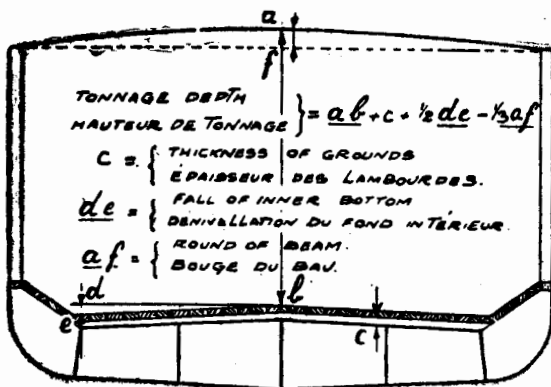 a
f
TONNAGE DEPTH
HAUTEUR DE TONNAGE } = ab + c + ½ de - ⅓ af
C = { THICKNESS OF GROUNDS
ÉPAISSEUR DES LAMBOURDES.
de = { FALL OF INNER BOTTOM
DENIVALLATION DU FOND INTÉRIEUR.
af = { ROUND OF BEAM.
BOUGE DU BAU.
d
b
e
c